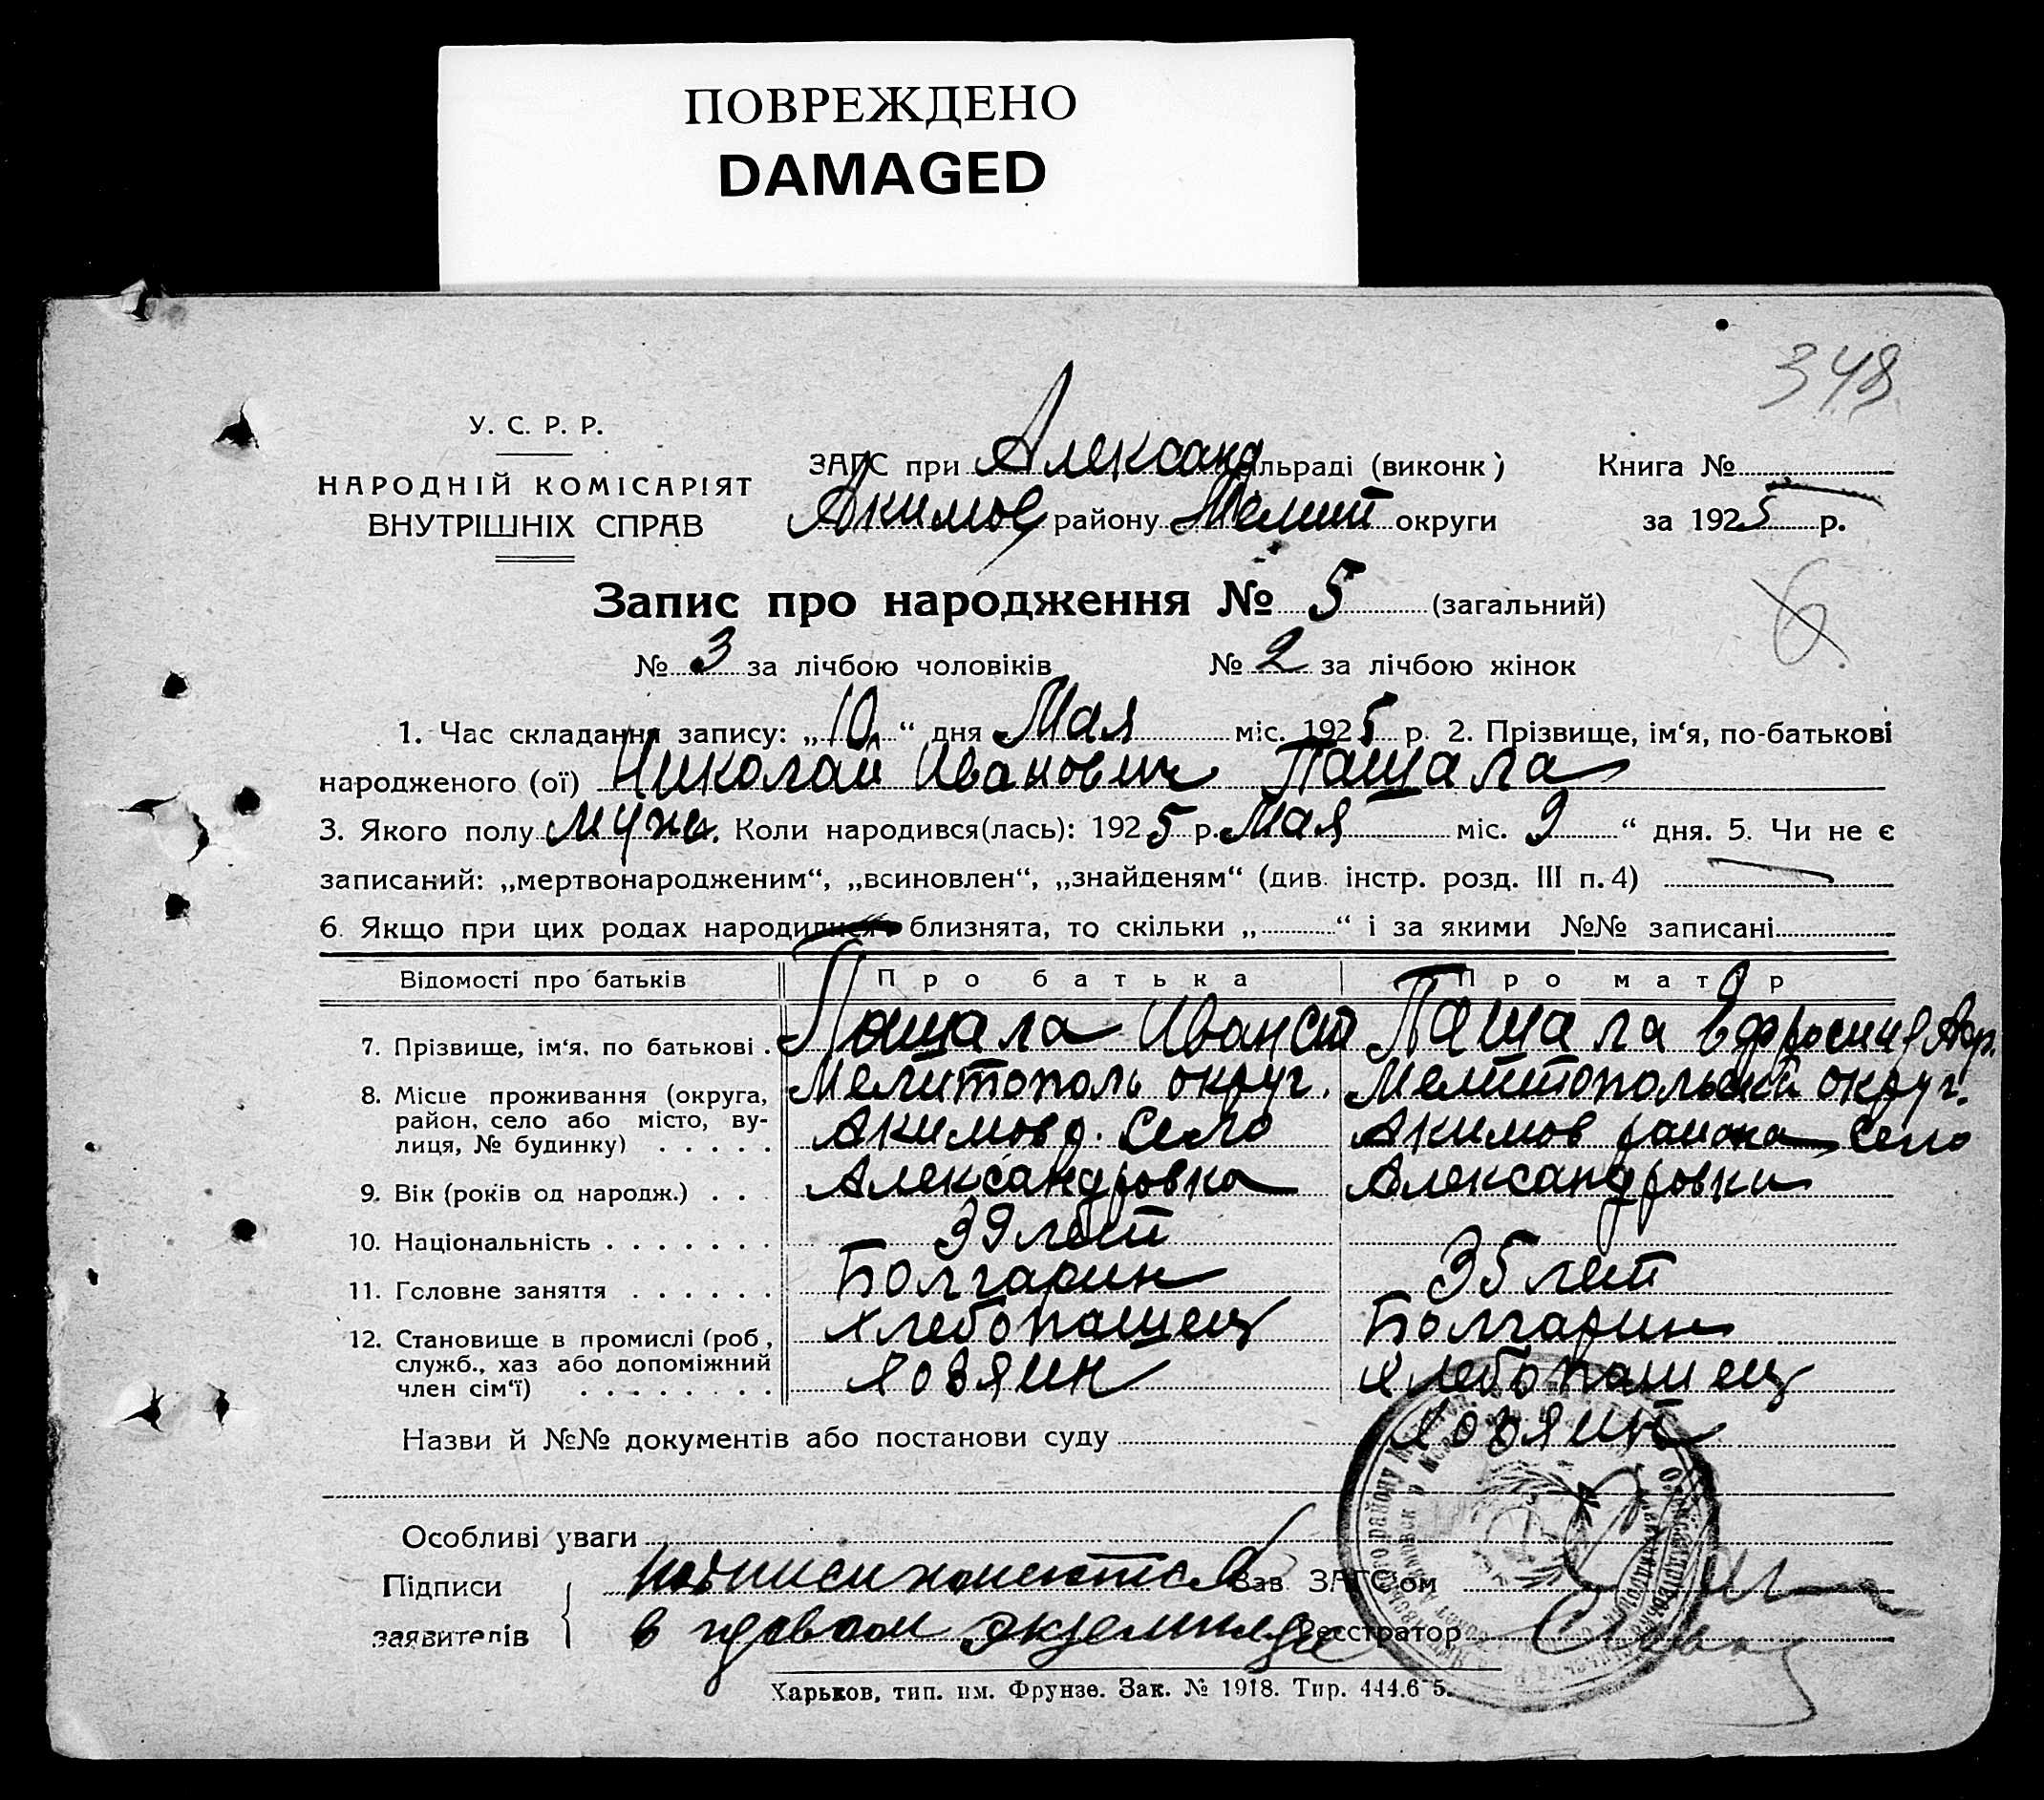 ПОВРЕЖДЕНО
DAMAGED
348
У. С. Р. Р.
НАРОДНІЙ КОМІСАРІЯТ
ВНУТРІШНІХ СПРАВ
ЗАГС при Александ льраді (виконк)
Книга №
Акимов району Мелит округи
за 1925 р.
Запис про народження № 5 (загальний)
6
№ 3 за лічбою чоловіків № 2 за лічбою жінок
1. Час складання запису: „10“ дня Мая міс. 1925 р. 2. Прізвище, ім‘я, по-батькові
народженого (ої) Николай Иванович Пашала
3. Якого полу мужс. Коли народився(лась): 1925 р. Мая міс. 9 “ дня. 5. Чи не є
записаний: „мертвонародженим“, „всиновлен“, „знайденям“ (див. інстр. розд. III п. 4)
6. Якщо при цих родах народилися близнята, то скільки „ “ і за якими №№ записані
Відомості про батьків Про батька Про матір
7. Прізвище, ім‘я, по батькові . Пашала Иван Пашала
8. Місце проживання (округа,
район, село або місто, ву-
лиця, № будинку) . . . . .
Мелитополь округ. Мелитопольской округ.
Акимов р. Село Акимов района Село
9. Вік (років од народж.) . . . Александровка Александровки
10. Національність . . . . . . . 39 лет
11. Головне заняття . . . . . . Болгарин 35 лет
12. Становище в промислі (роб,
служб., хаз або допоміжний
член сім‘ї) . . . . . . . .
хлебопашец Болгарин
хозяин хлебопашец
Назви й №№ документів або постанови суду хозяин
Особливі уваги
Підписи
заявителів
подписи имеются
в первом экземпляре
Зав ЗАГСом
Реєстратор
Харьков, тип. им. Фрунзе. Зак. № 1918. Тир. 444.6 5.